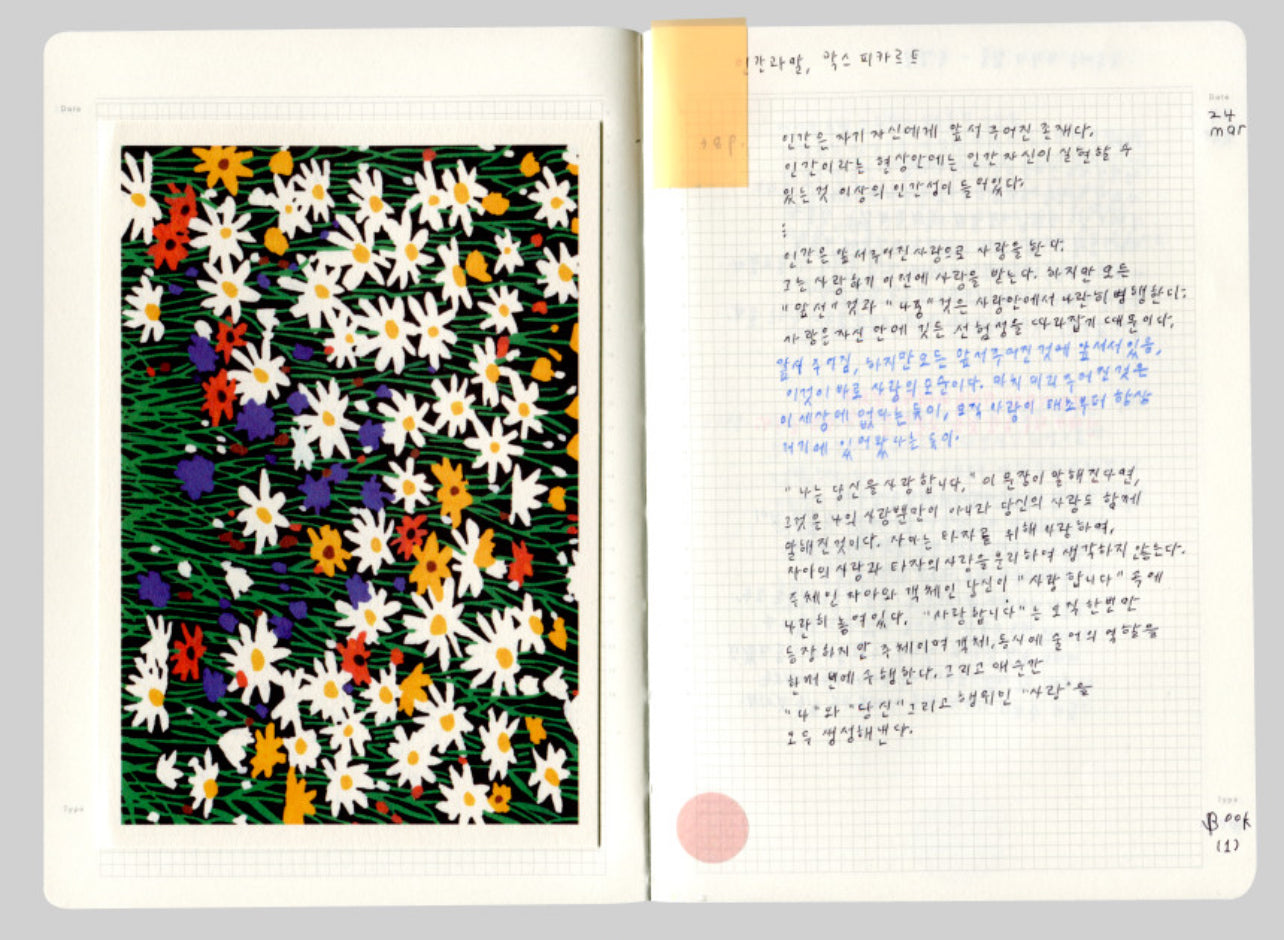 Date
Type
인간과 말, 막스 피카르트
Date
24
mar
인간은 자기 자신에게 앞서 주어진 존재다.
인간이라는 현상안에는 인간 자신이 실현할 수
있는 것 이상의 인간성이 들어있다.
:
인간은 앞서주어진 사랑으로 사랑을 한다.
그는 사랑하기 이전에 사랑을 받는다. 하지만 모든
"앞선" 것과 "나중" 것은 사랑안에서 나란히 병행한다;
사랑은 자신 안에 깃든 선험성을 따라잡기 때문이다.
앞서 주어짐, 하지만 모든 앞서주어진 것에 앞서서 있음,
이것이 바로 사랑의 표준이다. 마치 미리 주어진 것은
이 세상에 없다는 듯이, 오직 사랑이 태초부터 항상
거기에 있어왔다는 듯이.
"나는 당신을 사랑합니다," 이 문장이 말해진다면,
그것은 나의 사랑뿐만이 아니라 당신의 사랑도 함께
말해진것이다. 자아는 타자를 위해 사랑하며,
자아의 사랑과 타자의 사랑을 분리하여 생각하지 않는다.
주체인 자아와 객체인 당신이 "사랑합니다" 속에
나란히 놓여있다. "사랑합니다"는 오직 한번만
등장하지만 주체이며 객체, 동시에 술어의 역할을
한꺼번에 수행한다. 그리고 매순간
"나"와 "당신" 그리고 행위인 "사랑"을
모두 생성해낸다.
Type
Book
(1)